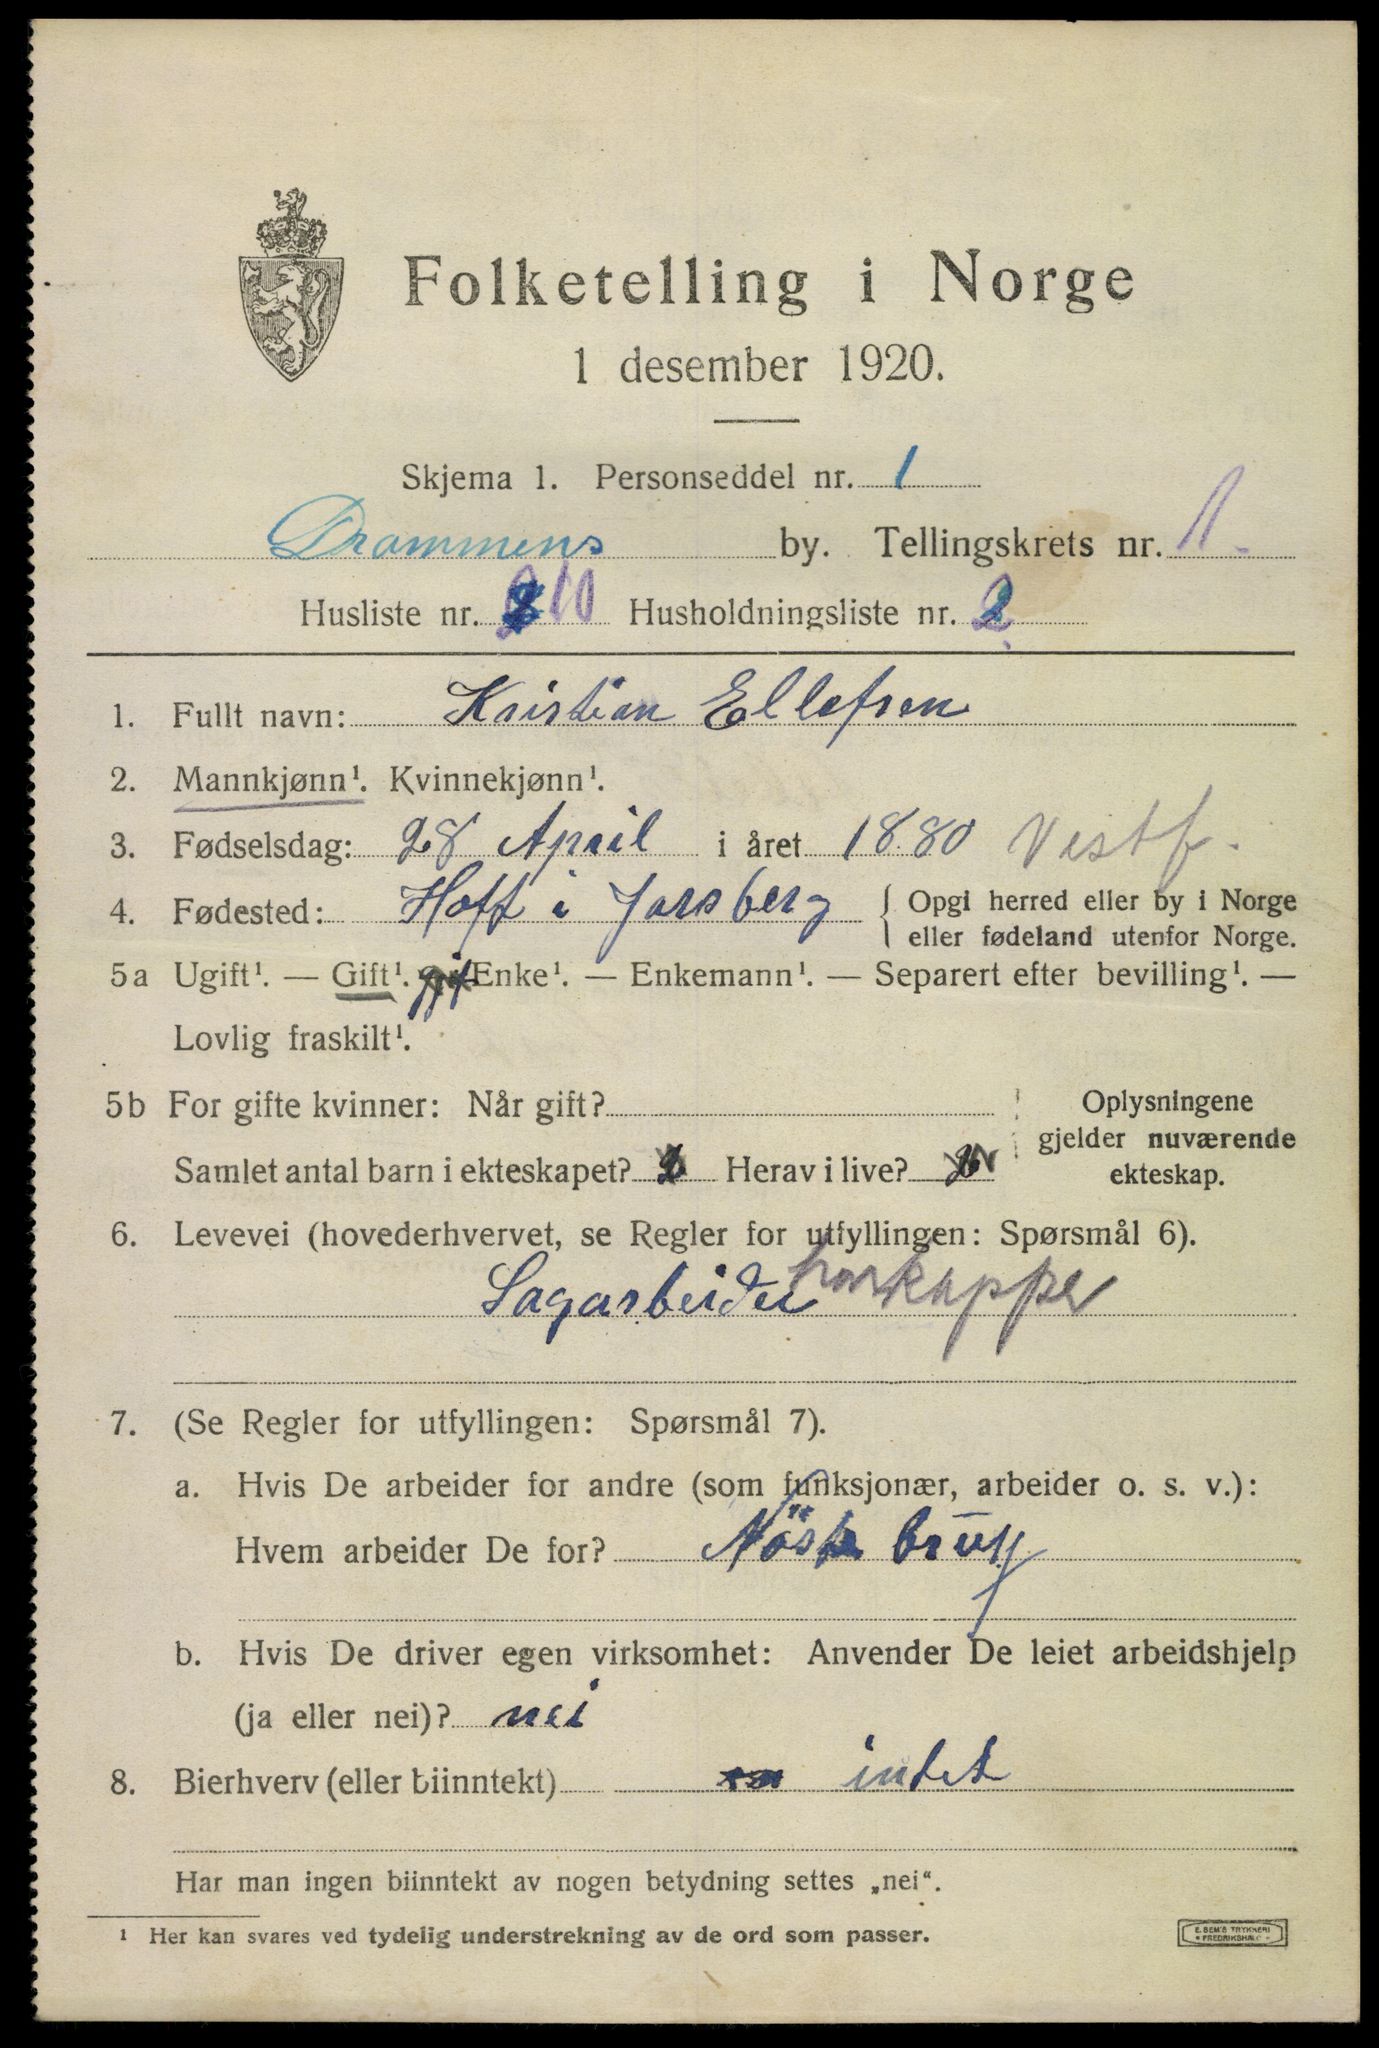 Folketelling i Norge
1 desember 1920.
Skjema 1. Personseddel nr. 1
Drammens by. Tellingskrets nr. 1.
Husliste nr. 10 Husholdningsliste nr. 2
1. Fullt navn: Kristian Ellefsen
2. Mannkjønn¹. Kvinnekjønn¹.
3. Fødselsdag: 28 April i året 1880 Vestf.
4. Fødested: Hoff i Jarsberg { Opgi herred eller by i Norge
eller fødeland utenfor Norge.
5a Ugift¹. — Gift¹. gift Enke¹. — Enkemann¹. — Separert efter bevilling¹. —
Lovlig fraskilt¹.
5b For gifte kvinner: Når gift? Oplysningene
gjelder nuværende
Samlet antal barn i ekteskapet? Herav i live? ekteskap.
6. Levevei (hovederhvervet, se Regler for utfyllingen: Spørsmål 6).
Sagarbeider kapper
7. (Se Regler for utfyllingen: Spørsmål 7).
a. Hvis De arbeider for andre (som funksjonær, arbeider o. s. v.):
Hvem arbeider De for? Nöste brug
b. Hvis De driver egen virksomhet: Anvender De leiet arbeidshjelp
(ja eller nei)? nei
8. Bierhverv (eller biinntekt) intet
Har man ingen biinntekt av nogen betydning settes „nei“.
¹ Her kan svares ved tydelig understrekning av de ord som passer.
E. SEM'S TRYKKERI
FREDRIKSHALD